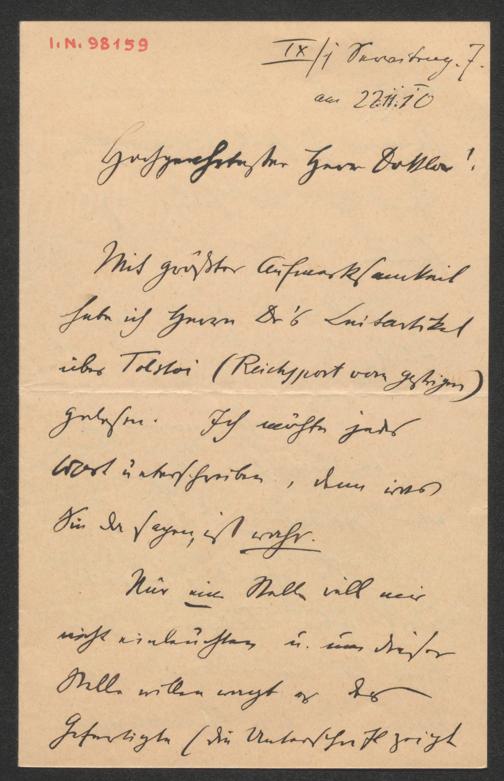 I.N. 98159
IX/1 Serviteng. 7.
am 22.II.10
Hochgeehrtester Herr Doktor!
Mit größter Aufmerksamkeit
habe ich Herrn Dr's Leitartikel
über Tolstoi (Reichspost vom gestrigen)
gelesen. Ich möchte jedes
Wort unterschreiben, denn was
Sie da sagen, ist wahr.
Nur eine Stelle will mir
nicht einleuchten u. um dieser
Stelle willen wagt es der
Gefertigte (die Unterschrift zeigt